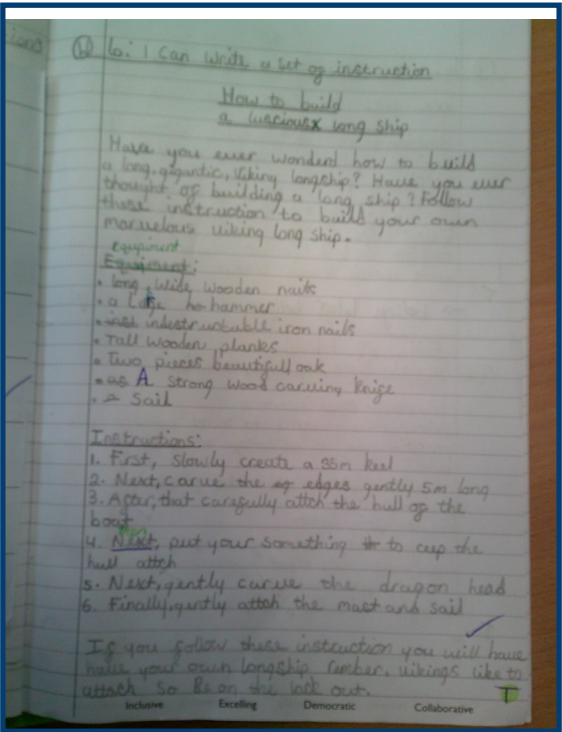 Lo: I Can write a set of instruction
How to build
a luscious long ship
Have you ever wonderd how to build
a long, gigantic, Viking longship? Have you ever
thought of building a long ship? Follow
these instruction to build your own
marvelous viking long ship.
equipment
Equiment:
• long, wide wooden nails
• a large hammer
• indestructuble iron nails
• Tall wooden planks
• Two pieces beautifull oak
• A strong wood carving knife
• a Sail
Instructions:
1. First, Slowly create a 35m keel
2. Next, carve the edges gently 5m long
3. After, that carefully attch the hull of the
boat
4. Next, put your something to cup the
hull attch
5. Next, gently carve the dragon head
6. Finally, gently attch the mast and sail
If you follow these instruction you will have
have your own longship. vikings like to
attack so Be on the look out.
T
Inclusive Excelling Democratic Collaborative